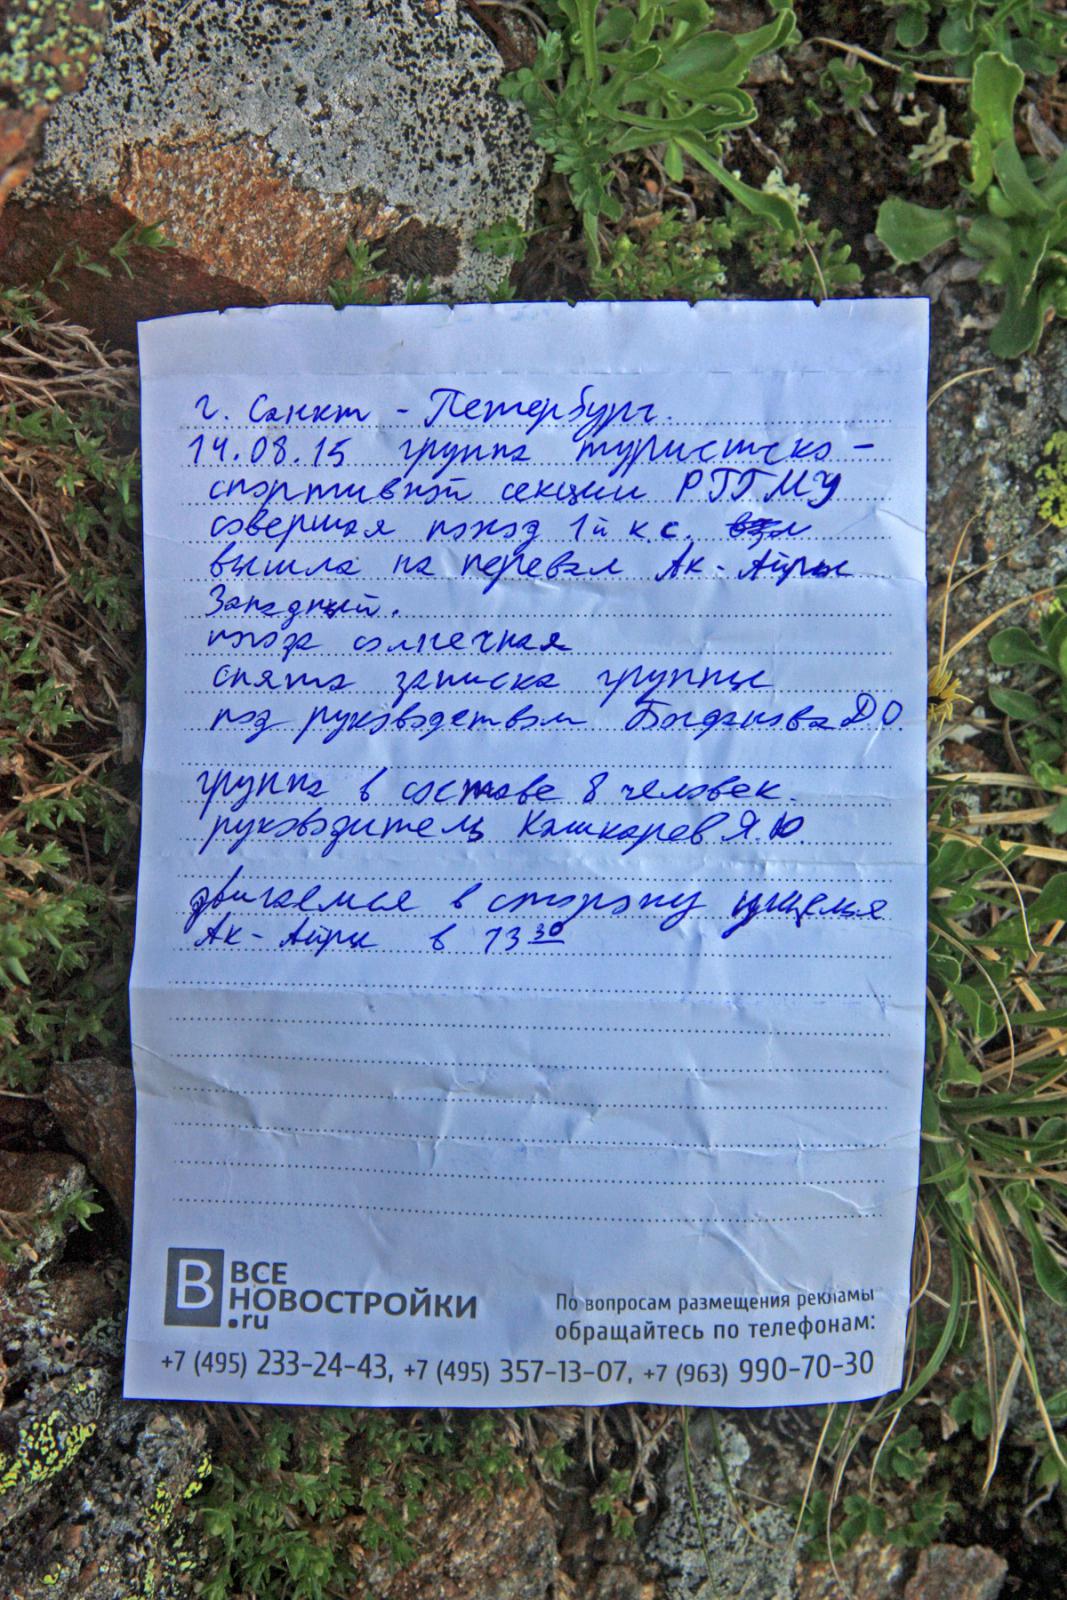 г. Санкт - Петербург.
14.08.15 группа туристско -
спортивной секции РГГМУ
совершая поход 1й к.с.
вышла на перевал Ак - Айры
Западный.
погода солнечная
снята записка группы
под руководством Богданова Д.О.
группа в составе 8 человек.
руководитель Кашкарев Я.Ю.
двигаемся в сторону ущелья
Ак - Айры в 13 30
В ВСЕ
НОВОСТРОЙКИ
.ru
По вопросам размещения рекламы
обращайтесь по телефонам:
+7 (495) 233-24-43, +7 (495) 357-13-07, +7 (963) 990-70-30